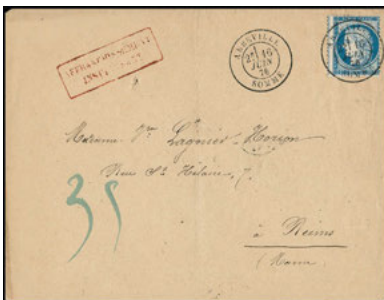 AFFRANCHISSEMENT
INSUFFISANT
ABBEVILLE
2E 16
JUIN
76
SOMME
Madame Vve Lagnier-Horion
Rue St Hilaire, 7.
35
à Reims
(Marne